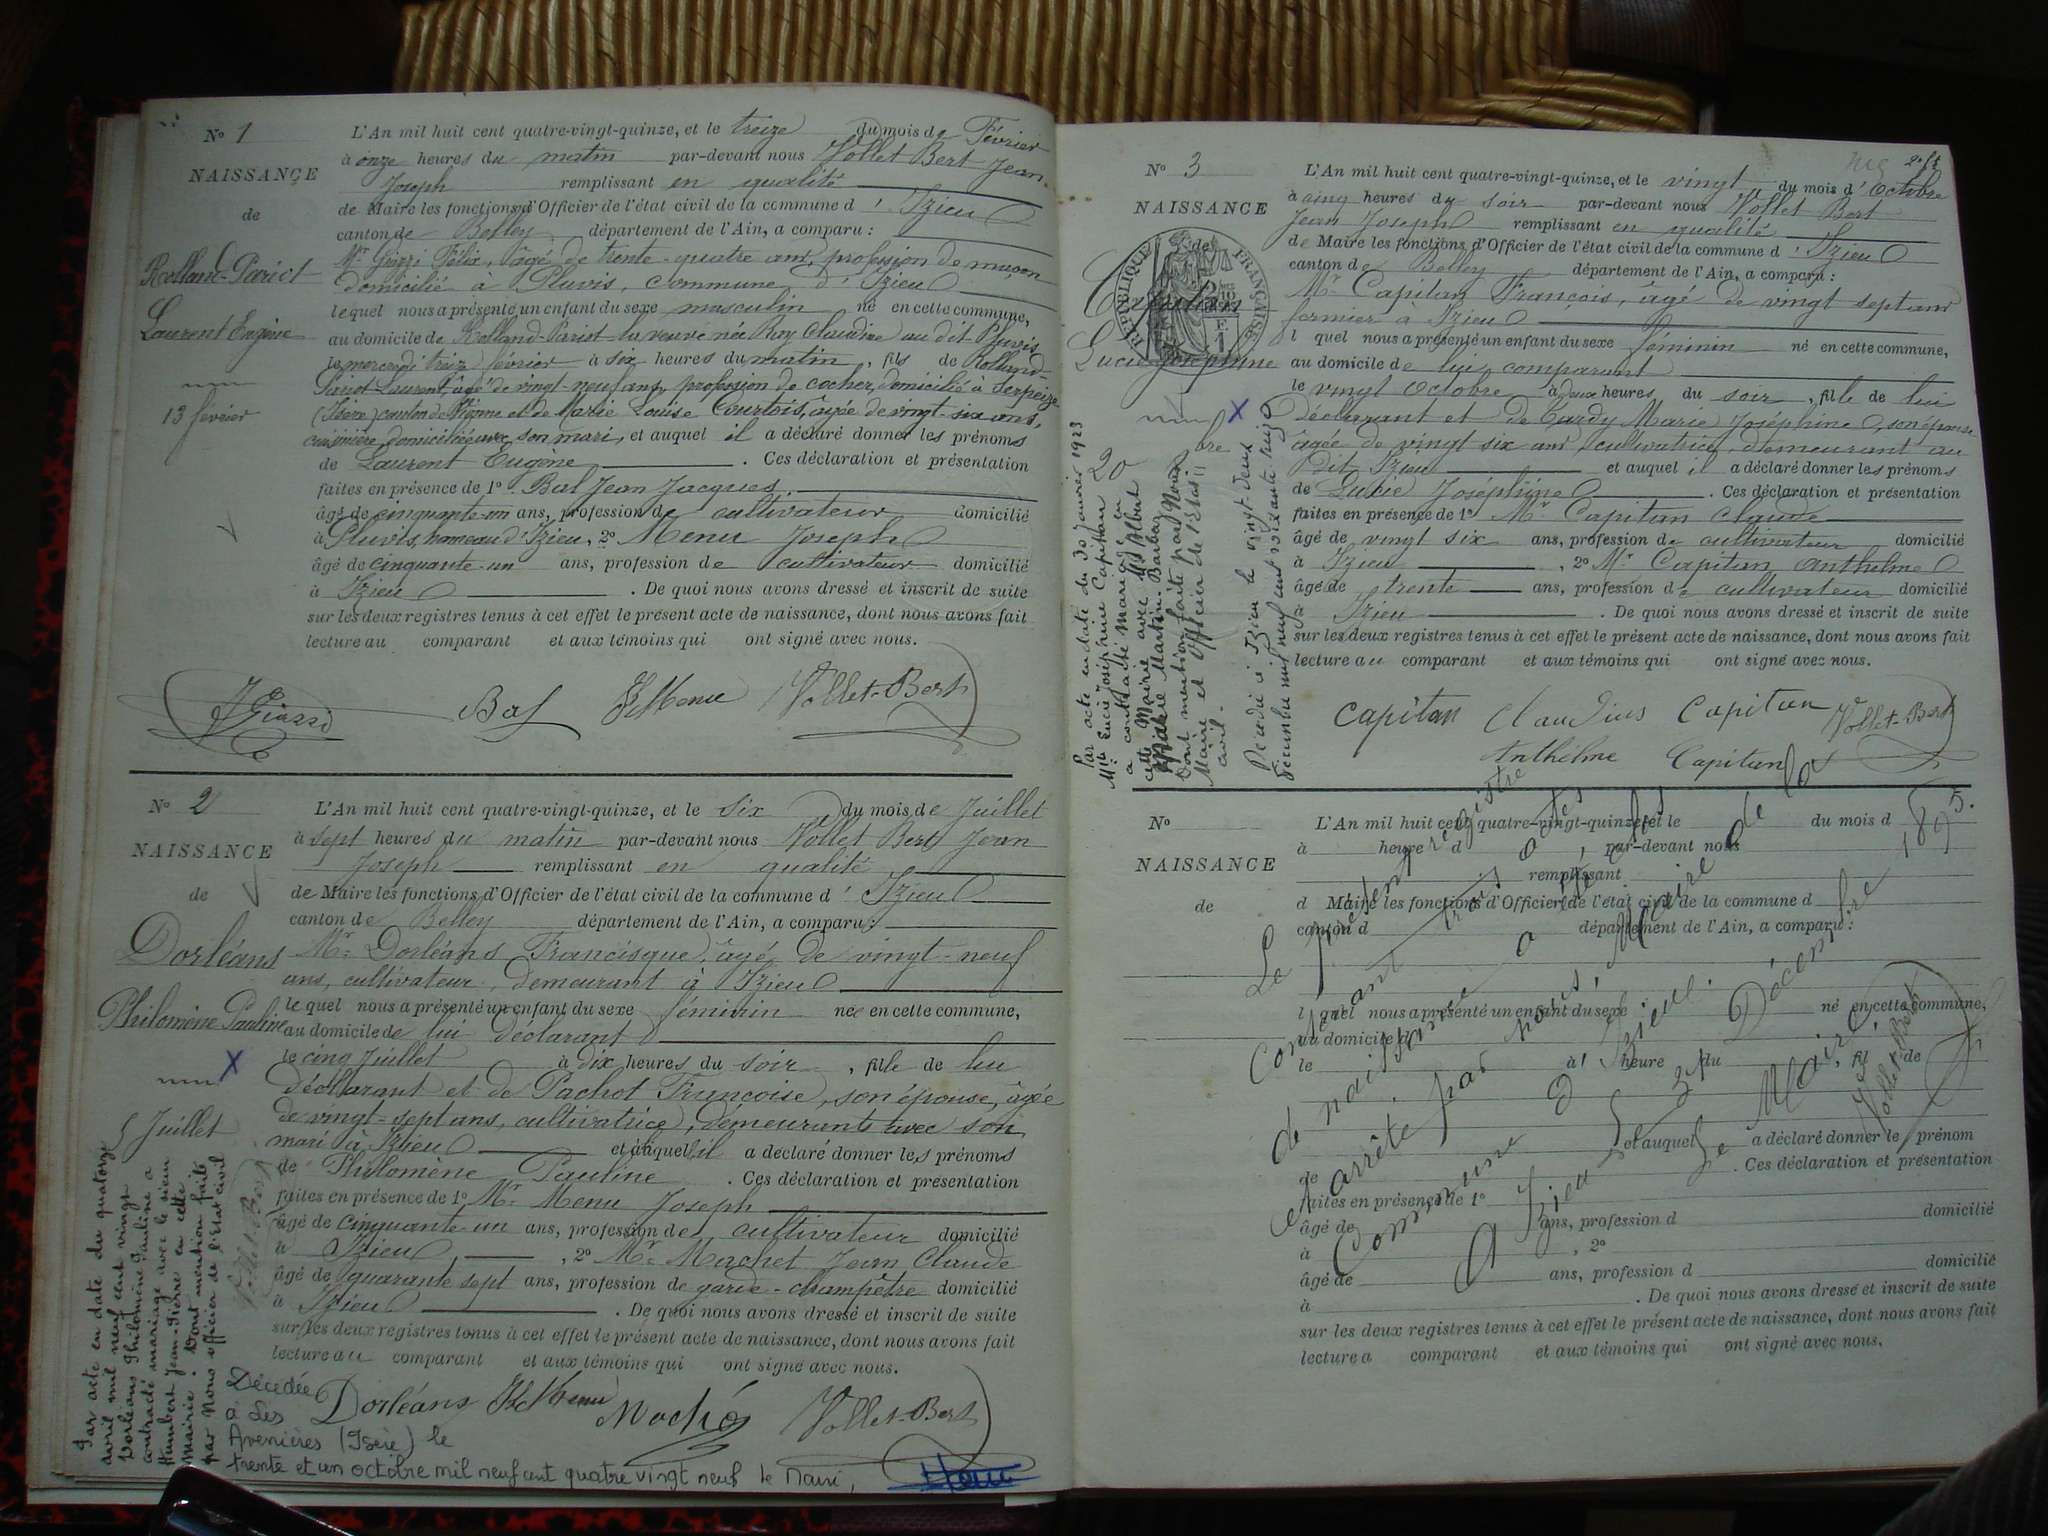 N° 1
NAISSANCE
de
Rolland-Pariot
Laurent Eugène
13 février
L'An mil huit cent quatre-vingt-quinze, et le treize du mois de Février
à onze heures du matin par-devant nous Vollet Bert Jean
Joseph remplissant en qualité
de Maire les fonctions d'Officier de l'état civil de la commune d' Izieu
canton de Belley département de l'Ain, a comparu :
Mr Giazzi Félix, âgé de trente-quatre ans, profession de maçon
domicilié à Pluvis, commune d' Izieu
lequel nous a présenté un enfant du sexe masculin né en cette commune,
au domicile de Rolland-Pariot la veuve née Roy Claudine au dit Pluvis
le mercredi treize février à six heures du matin, fils de Rolland-
Pariot Laurent, âgé de vingt-neuf ans, profession de cocher, domicilié à Serpeize
(Isère) canton de Vienne et de Marie Louise Courtois, âgée de vingt-six ans,
cuisinière domiciliée avec son mari, et auquel il a déclaré donner les prénoms
de Laurent Eugène . Ces déclaration et présentation
faites en présence de 1° Bal Jean Jacques
âgé de cinquante-un ans, profession de cultivateur domicilié
à Pluvis, hameau d'Izieu, 2° Menu Joseph
âgé de cinquante-un ans, profession de cultivateur domicilié
à Izieu . De quoi nous avons dressé et inscrit de suite
sur les deux registres tenus à cet effet le présent acte de naissance, dont nous avons fait
lecture au comparant et aux témoins qui ont signé avec nous.
Giazzi Bal Menu Vollet-Bert
N° 2
NAISSANCE
de
Dorléans
Philomène Pauline
5 Juillet
L'An mil huit cent quatre-vingt-quinze, et le six du mois de Juillet
à sept heures du matin par-devant nous Vollet Bert Jean
Joseph remplissant en qualité
de Maire les fonctions d'Officier de l'état civil de la commune d' Izieu
canton de Belley département de l'Ain, a comparu :
Mr Dorléans Francisque, âgé de vingt-neuf
ans, cultivateur, demeurant à Izieu
lequel nous a présenté un enfant du sexe féminin née en cette commune,
au domicile de lui déclarant
le cinq Juillet à dix heures du soir, fille de lui
déclarant et de Pachot Françoise, son épouse, âgée
de vingt-sept ans, cultivatrice, demeurant avec son
mari à Izieu et auquel il a déclaré donner les prénoms
de Philomène Pauline . Ces déclaration et présentation
faites en présence de 1° Mr Menu Joseph
âgé de cinquante-un ans, profession de cultivateur domicilié
à Izieu, 2° Mr Machet Jean Claude
âgé de quarante sept ans, profession de garde-champêtre domicilié
à Izieu . De quoi nous avons dressé et inscrit de suite
sur les deux registres tenus à cet effet le présent acte de naissance, dont nous avons fait
lecture au comparant et aux témoins qui ont signé avec nous.
Dorléans Menu Vollet-Bert
Par acte en date du quatorze
avril mil neuf cent vingt
Dorléans Philomène Pauline a
contracté mariage avec le sieur
Humbert Jean-Pierre en cette
mairie. Dont mention faite
par Nous officier de l'Etat civil
Vollet-Bert
Décédée
à Les
Avenières (Isère) le
trente et un octobre mil neuf cent quatre vingt neuf le Maire,
N° 3
NAISSANCE
de
RÉPUBLIQUE FRANÇAISE
Capitan
Lucie Joséphine
20 bre
2e ft
L'An mil huit cent quatre-vingt-quinze, et le vingt du mois d' Octobre
à cinq heures du soir par-devant nous Vollet Bert
Jean Joseph remplissant en qualité
de Maire les fonctions d'Officier de l'état civil de la commune d' Izieu
canton de Belley département de l'Ain, a comparu :
Mr Capitan François, âgé de vingt sept ans
fermier à Izieu
l quel nous a présenté un enfant du sexe féminin né en cette commune,
au domicile de lui comparant
le vingt Octobre à deux heures du soir, fille de lui
déclarant et de Curdy Marie Joséphine, son épouse
âgée de vingt six ans, cultivatrice, demeurant au
dit Izieu et auquel il a déclaré donner les prénoms
de Lucie Joséphine . Ces déclaration et présentation
faites en présence de 1° Mr Capitan Claude
âgé de vingt six ans, profession de cultivateur domicilié
à Izieu, 2° Mr Capitan Anthelme
âgé de trente ans, profession de cultivateur domicilié
à Izieu . De quoi nous avons dressé et inscrit de suite
sur les deux registres tenus à cet effet le présent acte de naissance, dont nous avons fait
lecture au comparant et aux témoins qui ont signé avec nous.
Capitan Claudius Capitan Vollet-Bert
Anthelme Capitan
Par acte en date du 30 janvier 1923
Mlle Lucie Joséphine Capitan
a contracté mariage en
cette Mairie avec Mr Albert
Marie Martin-Barbaz
Dont mention faite par Nous
Maire et Officier de l'Etat
civil.
Décédée à Izieu le vingt-deux
décembre mil neuf cent soixante huit
N°
NAISSANCE
de
L'An mil huit cent quatre-vingt-quinze, et le du mois d
à heure d , par-devant nous
remplissant
d Maire les fonctions d'Officier de l'état civil de la commune d
canton d département de l'Ain, a comparu :
l quel nous a présenté un enfant du sexe né en cette commune,
au domicile d
le à heure du , fil de
et auquel a déclaré donner le prénom
de . Ces déclaration et présentation
faites en présence de 1°
âgé de ans, profession d domicilié
à , 2°
âgé de ans, profession d domicilié
à . De quoi nous avons dressé et inscrit de suite
sur les deux registres tenus à cet effet le présent acte de naissance, dont nous avons fait
lecture a comparant et aux témoins qui ont signé avec nous.
Le présent registre
contenant trois actes
de naissance a été clos
et arrêté par nous, Maire de la
Commune d'Izieu.
A Izieu le 31 Décembre 1895.
Le Maire
Vollet-Bert